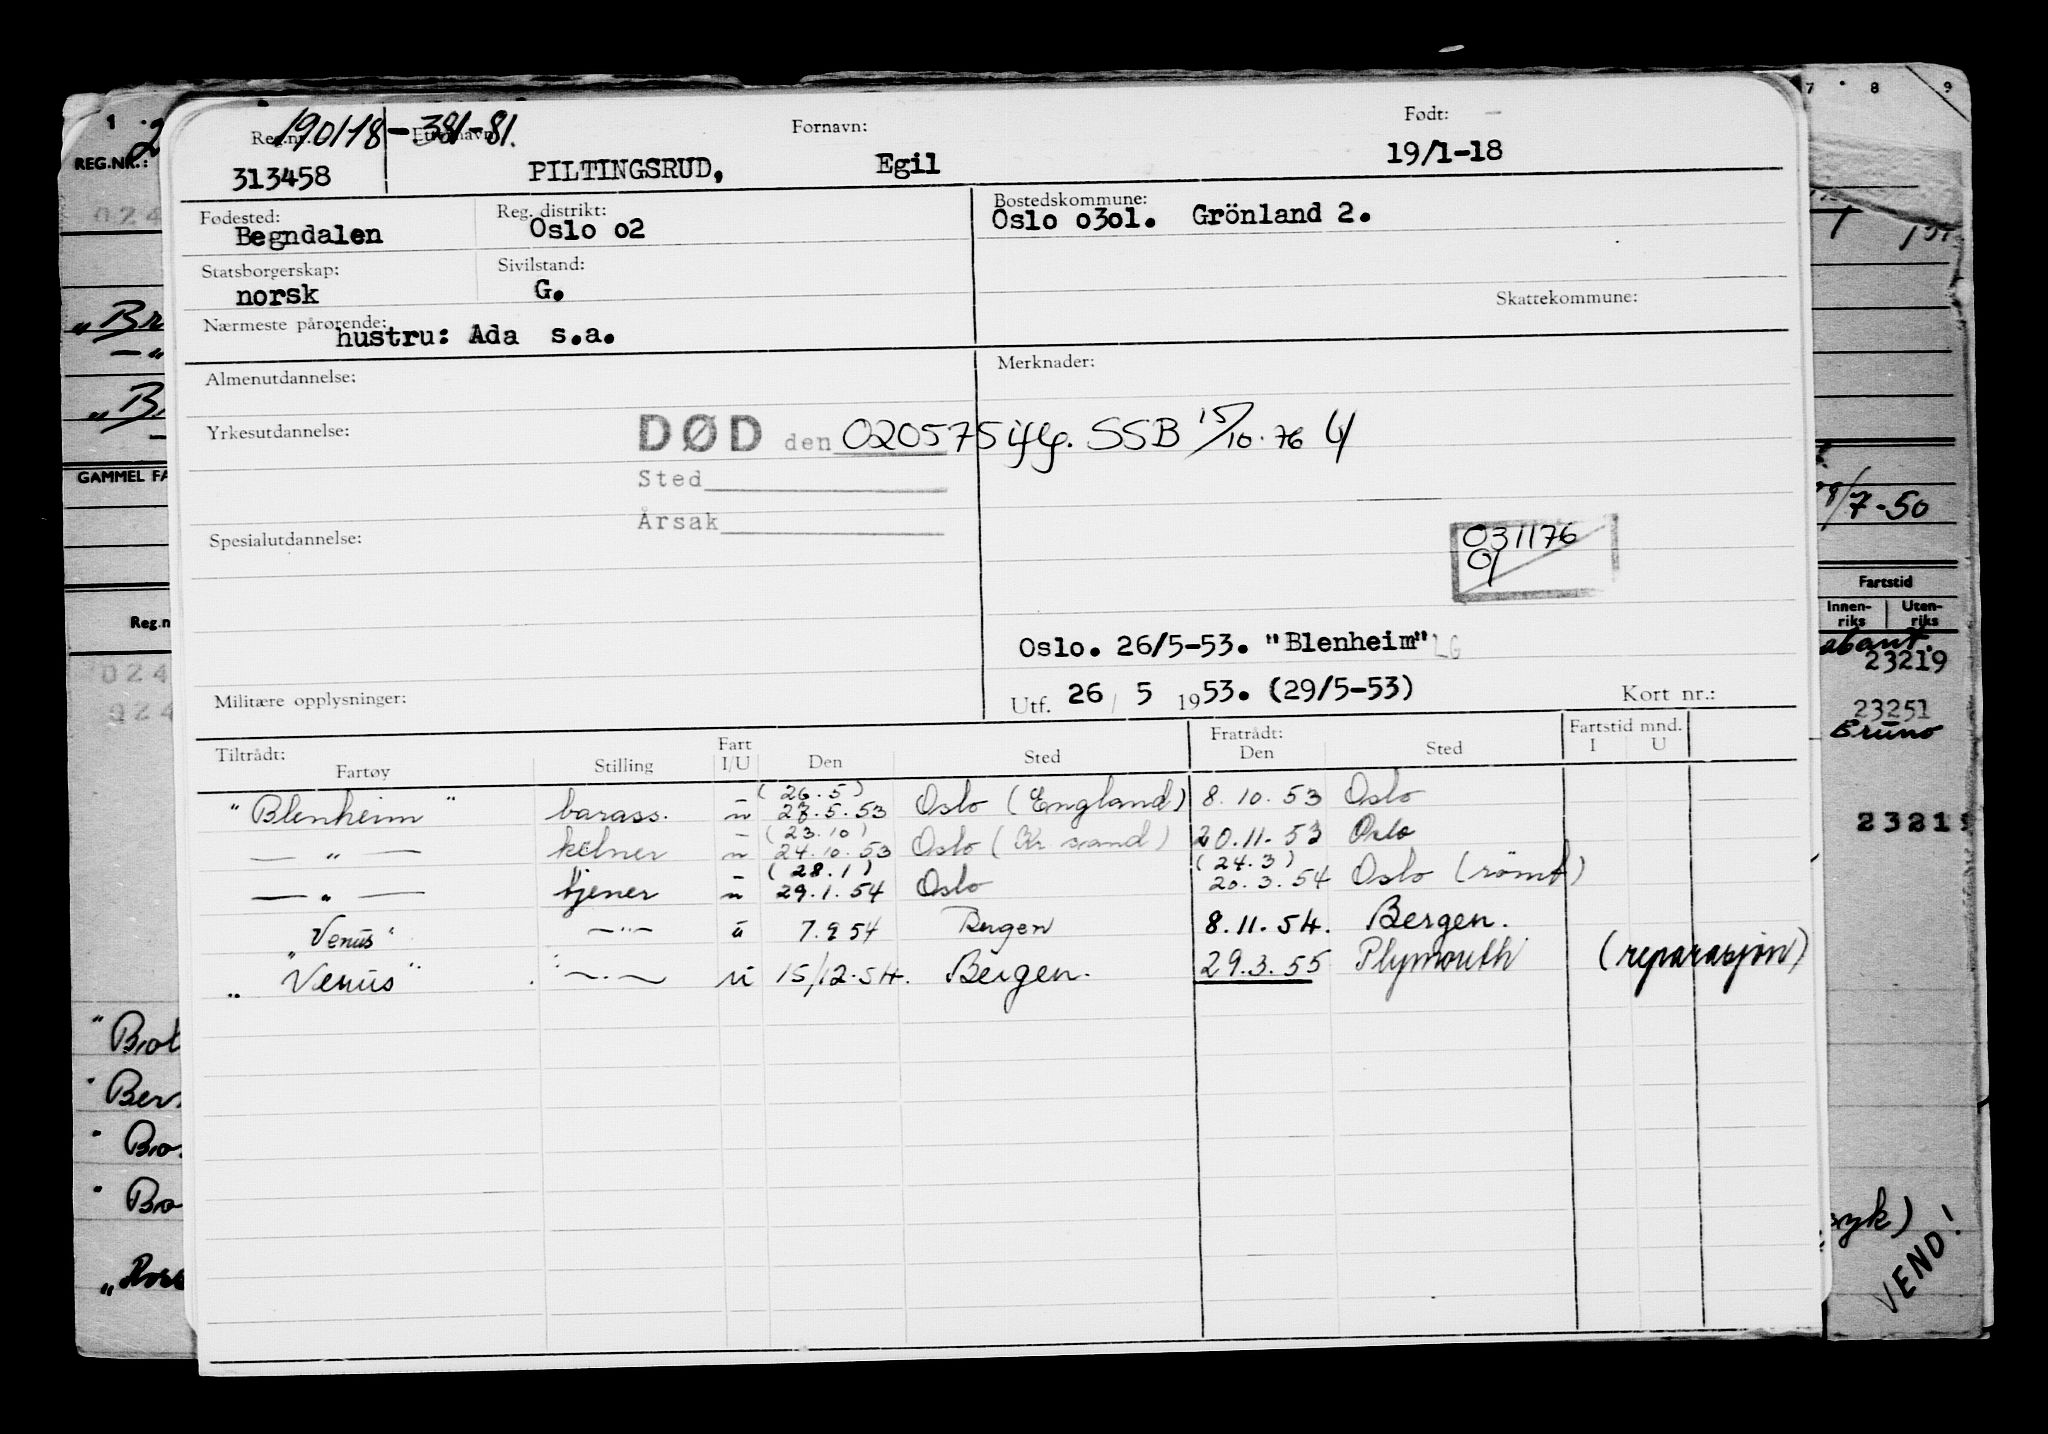 190118-381-81.
Reg.nr. Etternavn: Fornavn: Født:
313458 PILTINGSRUD, Egil 19/1-18
Fødested: Reg. distrikt: Bostedskommune:
Begndalen Oslo o2 Oslo o3o1. Grönland 2.
Statsborgerskap: Sivilstand:
norsk G.
Skattekommune:
Nærmeste pårørende:
hustru: Ada s.a.
Almenutdannelse: Merknader:
Yrkesutdannelse:
DØD den 020575 iflg. SSB 15/10.76
Sted
Årsak
Spesialutdannelse:
031176
Oslo. 26/5-53. "Blenheim" LG
Militære opplysninger:
Utf. 26 / 5 1953. (29/5-53) Kort nr.:
Tiltrådt: Fart Fratrådt: Fartstid mnd.
Fartøy Stilling I/U Den Sted Den Sted I U
(26.5)
"Blenheim" barass. u 27.5.53 Oslo (England) 8.10.53 Oslo
(23.10)
— " — kelner u 24.10.53 Oslo (Kr. sand) 20.11.53 Oslo
(28.1) (24.3)
— " — tjener u 29.1.54 Oslo 20.3.54 Oslo (römt)
"Venus" — " — u 7.9 54 Bergen 8.11.54. Bergen.
"Venus" — " — u 15/12.54. Bergen. 29.3.55 Plymouth (reparasjon)
1 2
REG.NR.:
024
"Br
— "
"B
GAMMEL FA
Reg.n
024
024
"Ber
7 8 9
/7-50
Fartstid
Innen-riks Uten-riks
23219
23251
Bruno
2321
VEND!